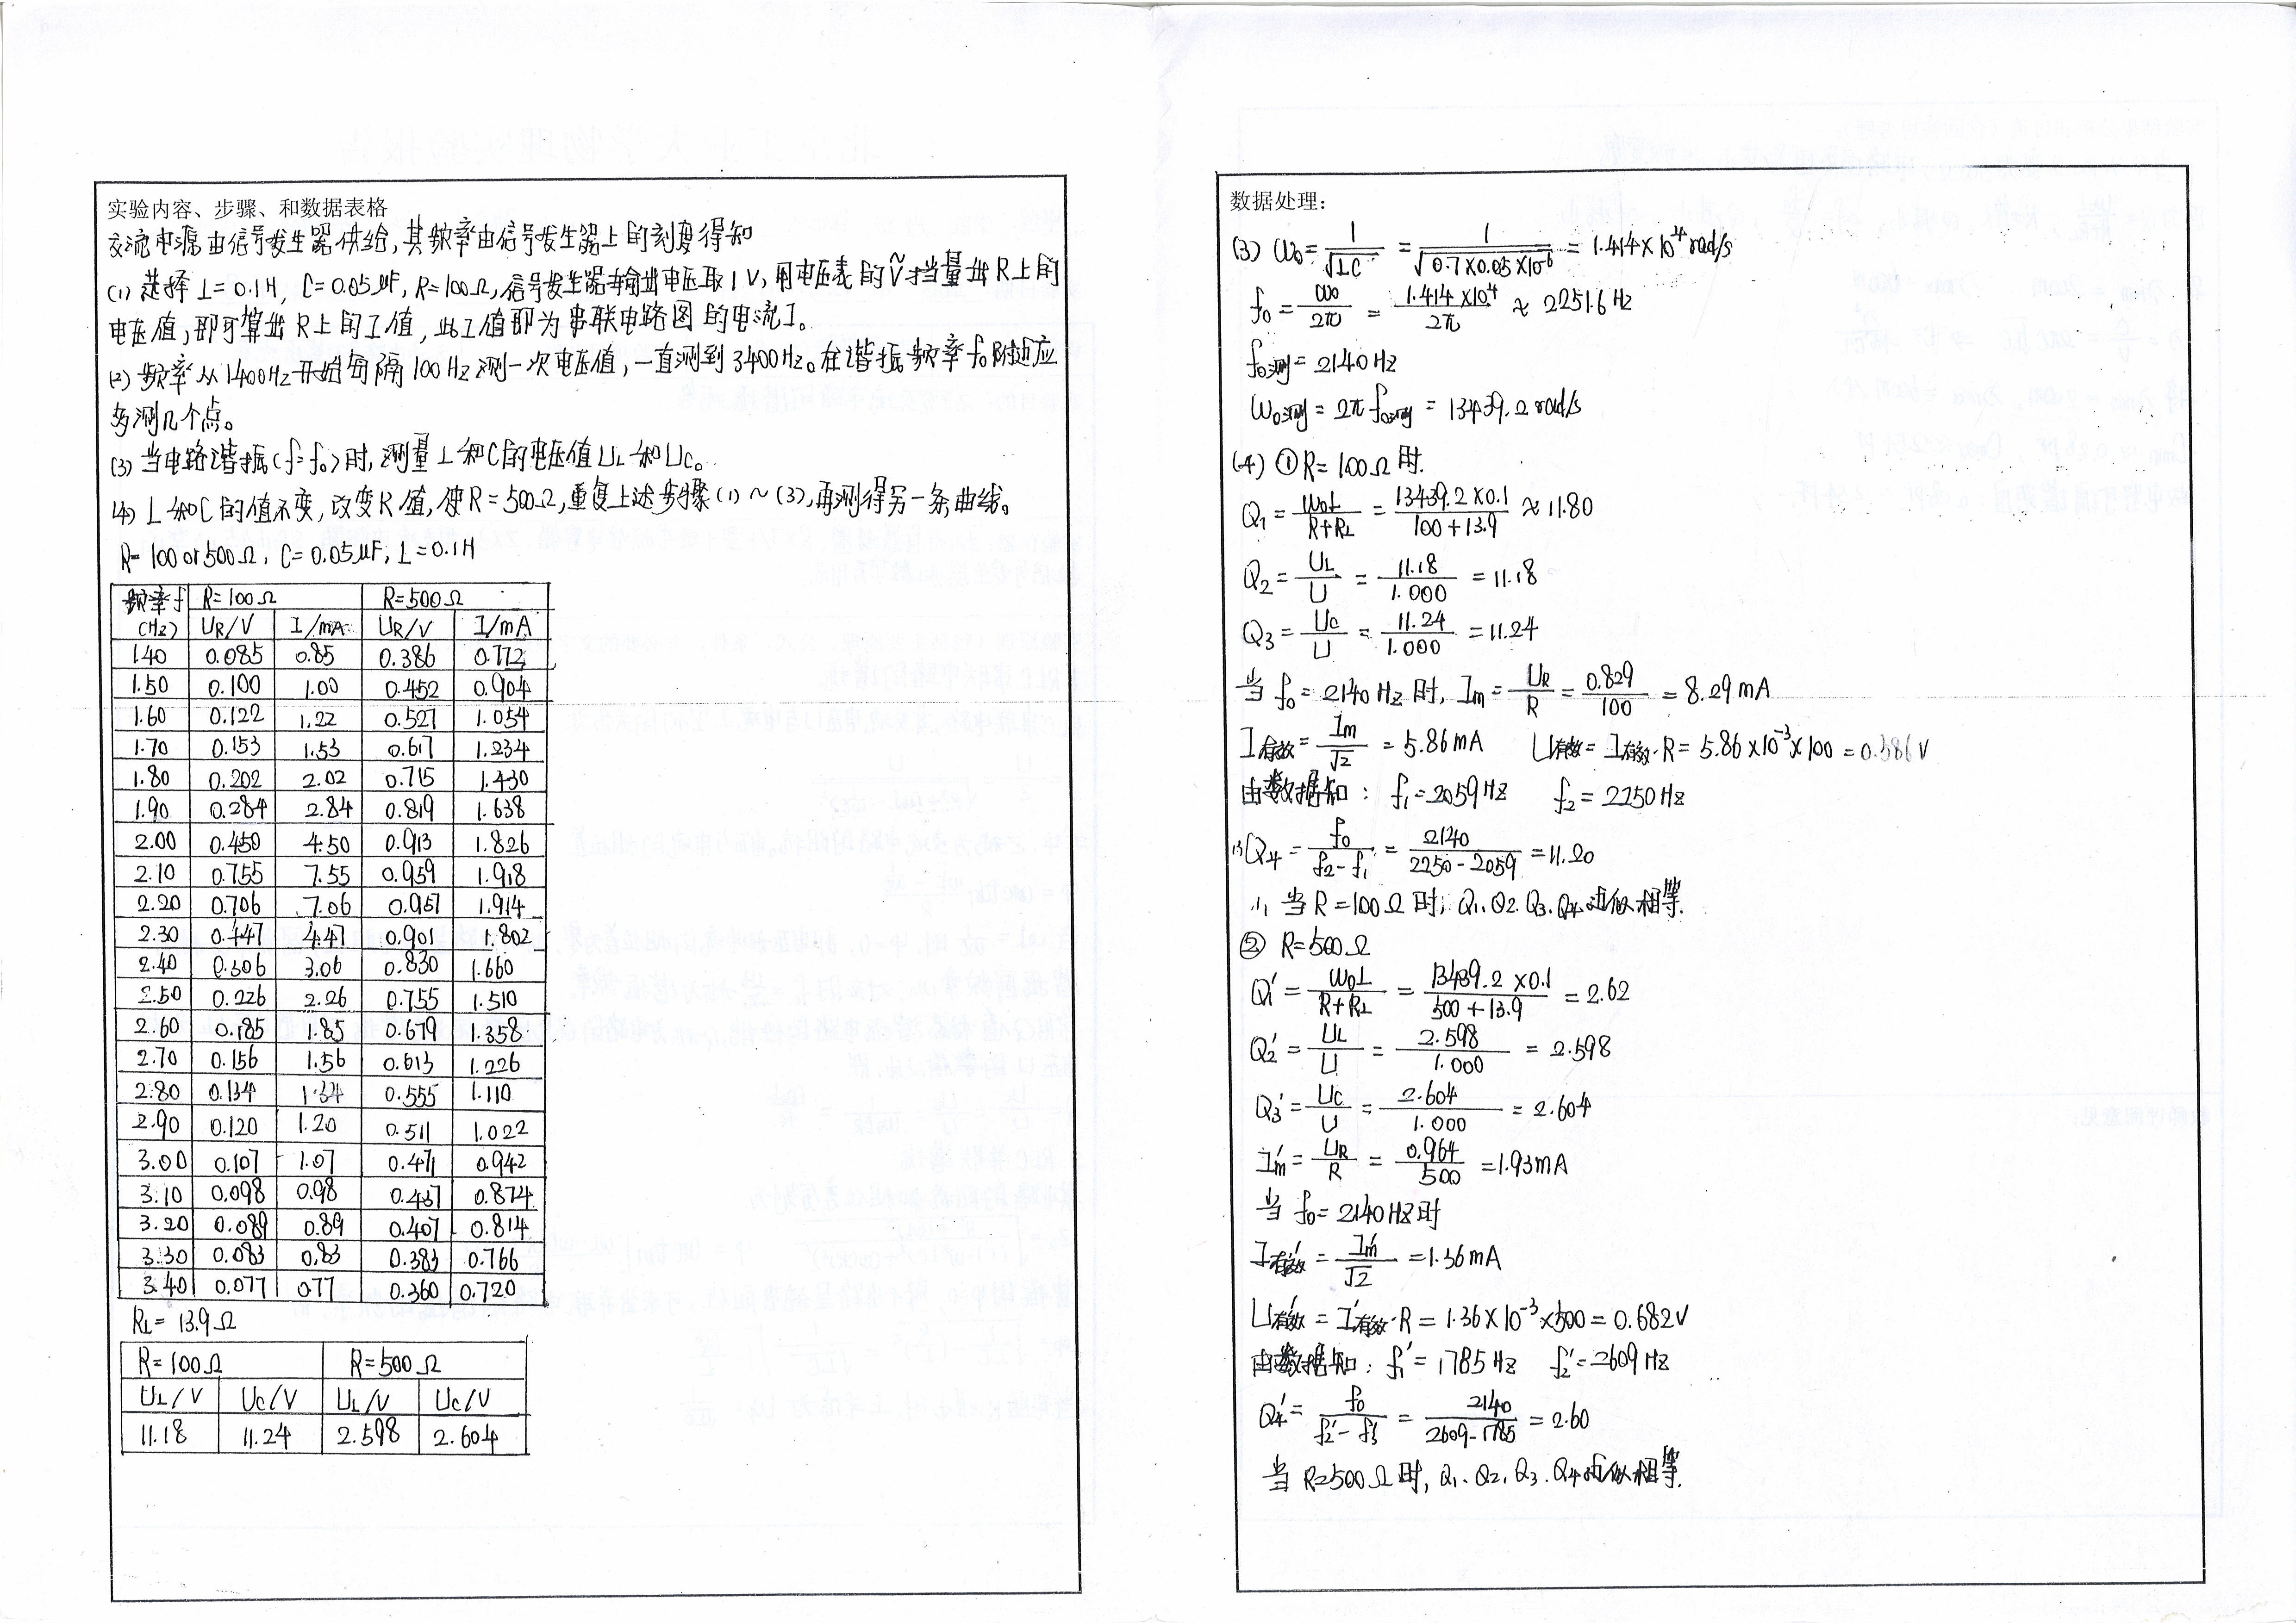 实验内容、步骤、和数据表格
交流电源由信号发生器供给，其频率由信号发生器上的刻度得知
(1) 选择L=0.1H, C=0.05μF, R=100Ω, 信号发生器输出电压取1V, 用电压表的Ṽ挡量出R上的
电压值, 即可算出R上的I值, 此I值即为串联电路图的电流I。
(2) 频率从1400Hz开始每隔100Hz测一次电压值, 一直测到3400Hz。在谐振频率f₀附近应
多测几个点。
(3) 当电路谐振(f=f₀)时, 测量L和C的电压值UL和UC。
(4) L和C的值不变, 改变R值, 使R=500Ω, 重复上述步骤(1)~(3), 再测得另一条曲线。
R=100 or 500Ω, C=0.05μF, L=0.1H
频率f R=100Ω R=500Ω
(Hz) UR/V I/mA UR/V I/mA
1.40 0.085 0.85 0.386 0.772
1.50 0.100 1.00 0.452 0.904
1.60 0.122 1.22 0.527 1.054
1.70 0.153 1.53 0.617 1.234
1.80 0.202 2.02 0.715 1.430
1.90 0.284 2.84 0.819 1.638
2.00 0.450 4.50 0.913 1.826
2.10 0.755 7.55 0.959 1.918
2.20 0.706 7.06 0.957 1.914
2.30 0.447 4.47 0.901 1.802
2.40 0.306 3.06 0.830 1.660
2.50 0.226 2.26 0.755 1.510
2.60 0.185 1.85 0.679 1.358
2.70 0.156 1.56 0.613 1.226
2.80 0.134 1.34 0.555 1.110
2.90 0.120 1.20 0.511 1.022
3.00 0.107 1.07 0.471 0.942
3.10 0.098 0.98 0.437 0.874
3.20 0.089 0.89 0.407 0.814
3.30 0.083 0.83 0.383 0.766
3.40 0.077 0.77 0.360 0.720
RL=13.9Ω
R=100Ω R=500Ω
UL/V UC/V UL/V UC/V
11.18 11.24 2.598 2.604
数据处理:
(3) ω₀=1/√LC = 1/√0.1×0.05×10⁻⁶ = 1.414×10⁴rad/s
f₀=ω₀/2π = 1.414×10⁴/2π ≈ 2251.6Hz
f₀测=2140Hz
ω₀测=2πf₀测=13439.2rad/s
(4) ①R=100Ω时.
Q₁=ω₀L/R+RL = 13439.2×0.1/100+13.9 ≈11.80
Q₂=UL/U = 11.18/1.000 =11.18
Q₃=UC/U = 11.24/1.000 =11.24
当f₀=2140Hz时, Im=UR/R=0.829/100=8.29mA
I有效=Im/√2=5.86mA U有效=I有效·R=5.86×10⁻³×100=0.586V
由数据知: f₁=2059Hz f₂=2250Hz
∴Q₄=f₀/f₂-f₁=2140/2250-2059=11.20
∴当R=100Ω时, Q₁、Q₂、Q₃、Q₄近似相等.
② R=500Ω
Q₁'=ω₀L/R+RL=13439.2×0.1/500+13.9=2.62
Q₂'=UL/U=2.598/1.000=2.598
Q₃'=UC/U=2.604/1.000=2.604
Im'=UR/R=0.964/500=1.93mA
当f₀=2140Hz时
I有效'=Im'/√2=1.36mA
U有效'=I有效'·R=1.36×10⁻³×500=0.682V
由数据知: f₁'=1785Hz f₂'=2609Hz
Q₄'=f₀/f₂'-f₁'=2140/2609-1785=2.60
当R=500Ω时, Q₁、Q₂、Q₃、Q₄近似相等.